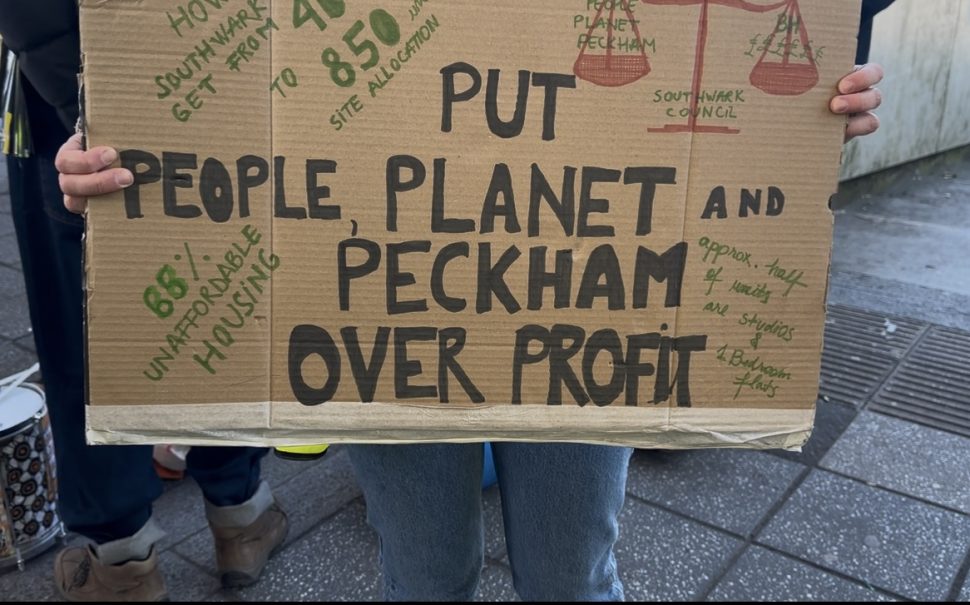 HOW
SOUTHWARK
GET FROM
TO 850
SITE ALLOCATION
PEOPLE
PLANET
PECKHAM
BH
£££££€
SOUTHWARK
COUNCIL
PUT
PEOPLE, PLANET AND
PECKHAM
OVER PROFIT
88%
UNAFFORDABLE
HOUSING
approx. half
of units
are studios
&
1 Bedroom
flats